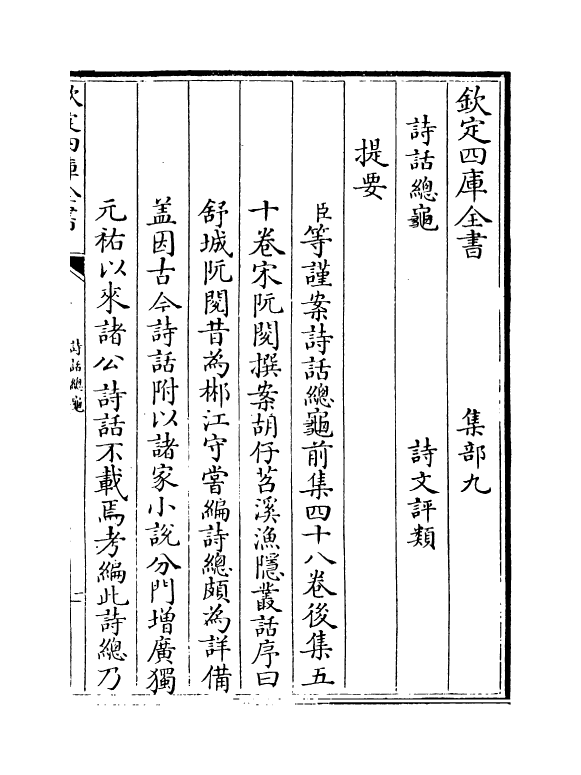 欽定四庫全書　集部九
詩話總龜　詩文評類
提要
臣等謹案詩話總龜前集四十八卷後集五
十卷宋阮閱撰案胡仔苕溪漁隱叢話序曰
舒城阮閱昔為郴江守嘗編詩總頗為詳備
盖因古今詩話附以諸家小說分門增廣獨
元祐以來諸公詩話不載焉考編此詩總乃
欽定四庫全書
詩話總龜
一